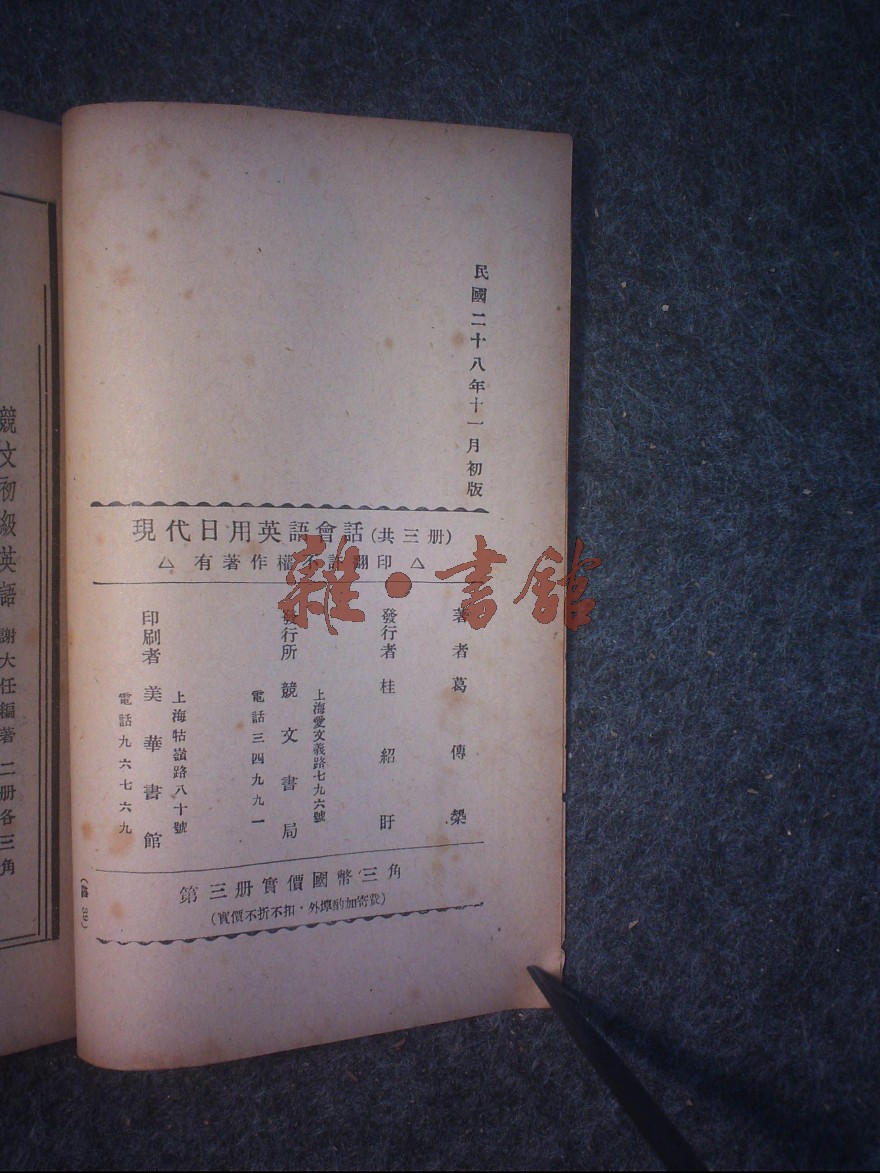 民國二十八年十一月初版
現代日用英語會話(共三册)
△ 有著作權不許翻印 △
著者 葛傳槼
發行者 桂紹盱
上海愛文義路七九六號
發行所 競文書局
電話三四九九一
上海牯嶺路八十號
印刷者 美華書館
電話九六七六九
第三册實價國幣三角
(實價不折不扣·外埠酌加寄費)
競文初級英語 謝大任編著 二册各三角
雜·書館